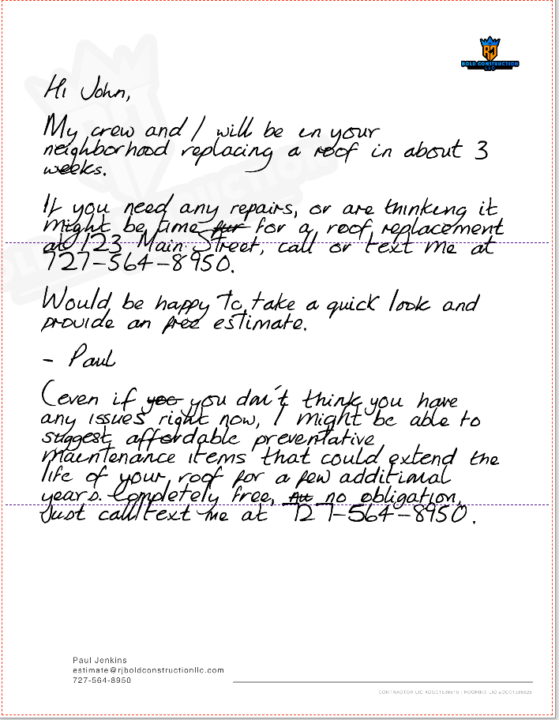 RJ
BOLD CONSTRUCTION
LLC
Hi John,
My crew and I will be in your
neighborhood replacing a roof in about 3
weeks.
If you need any repairs, or are thinking it
might be time for for a roof replacement
at 123 Main Street, call or text me at
727-564-8950.
Would be happy to take a quick look and
provide an free estimate.
- Paul
(even if yoo you don't think you have
any issues right now, I might be able to
suggest affordable preventative
maintenance items that could extend the
life of your roof for a few additional
years. Completely free, no obligation.
Just call/text me at 727-564-8950.
Paul Jenkins
estimate@rjboldconstructionllc.com
727-564-8950